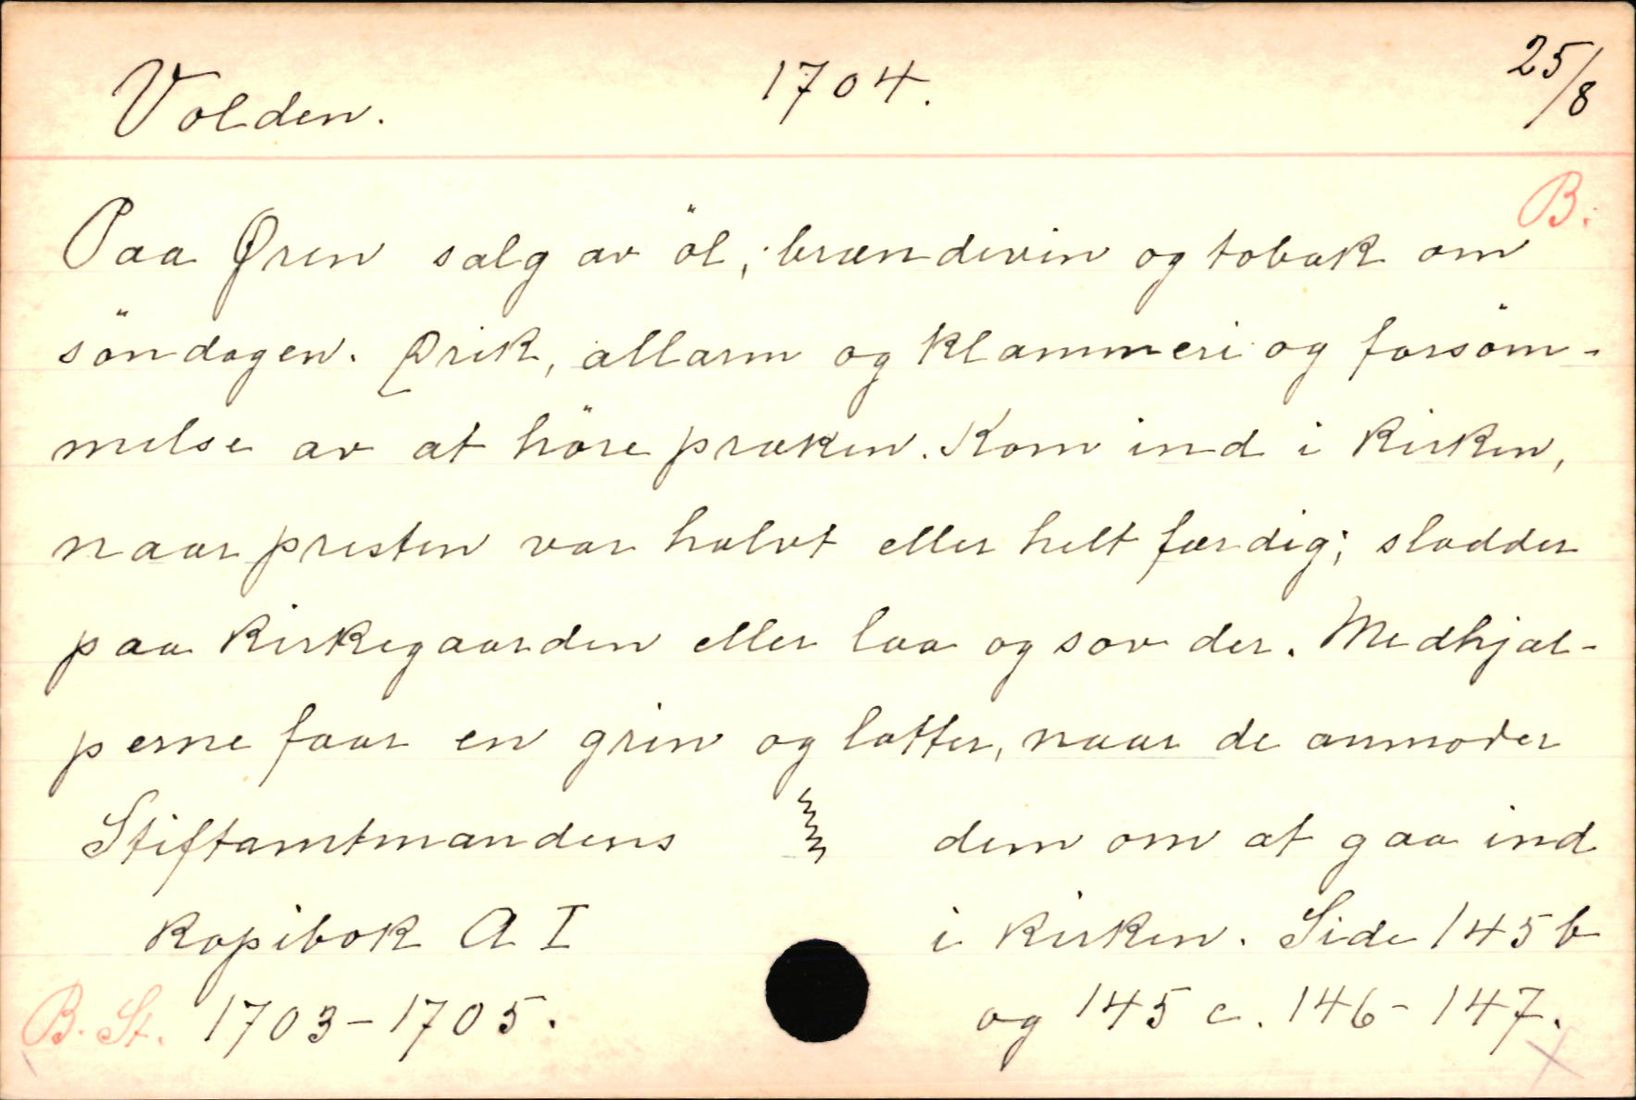 Volden. 1704. 25/8
B.
Paa Øren salg av öl, brændevin og tobak om
söndagen. Drik, allarm og klammeri og forsöm-
melse av at höre præken. Kom ind i kirken,
naar presten var halvt eller helt færdig; sladder
paa kirkegaarden eller laa og sov der. Medhjæl-
perne faar en grin og latter, naar de anmoder
Stiftamtmandens dem om at gaa ind
kopibok A I i kirken. Side 145 b
B. St. 1703-1705. og 145 c. 146-147.